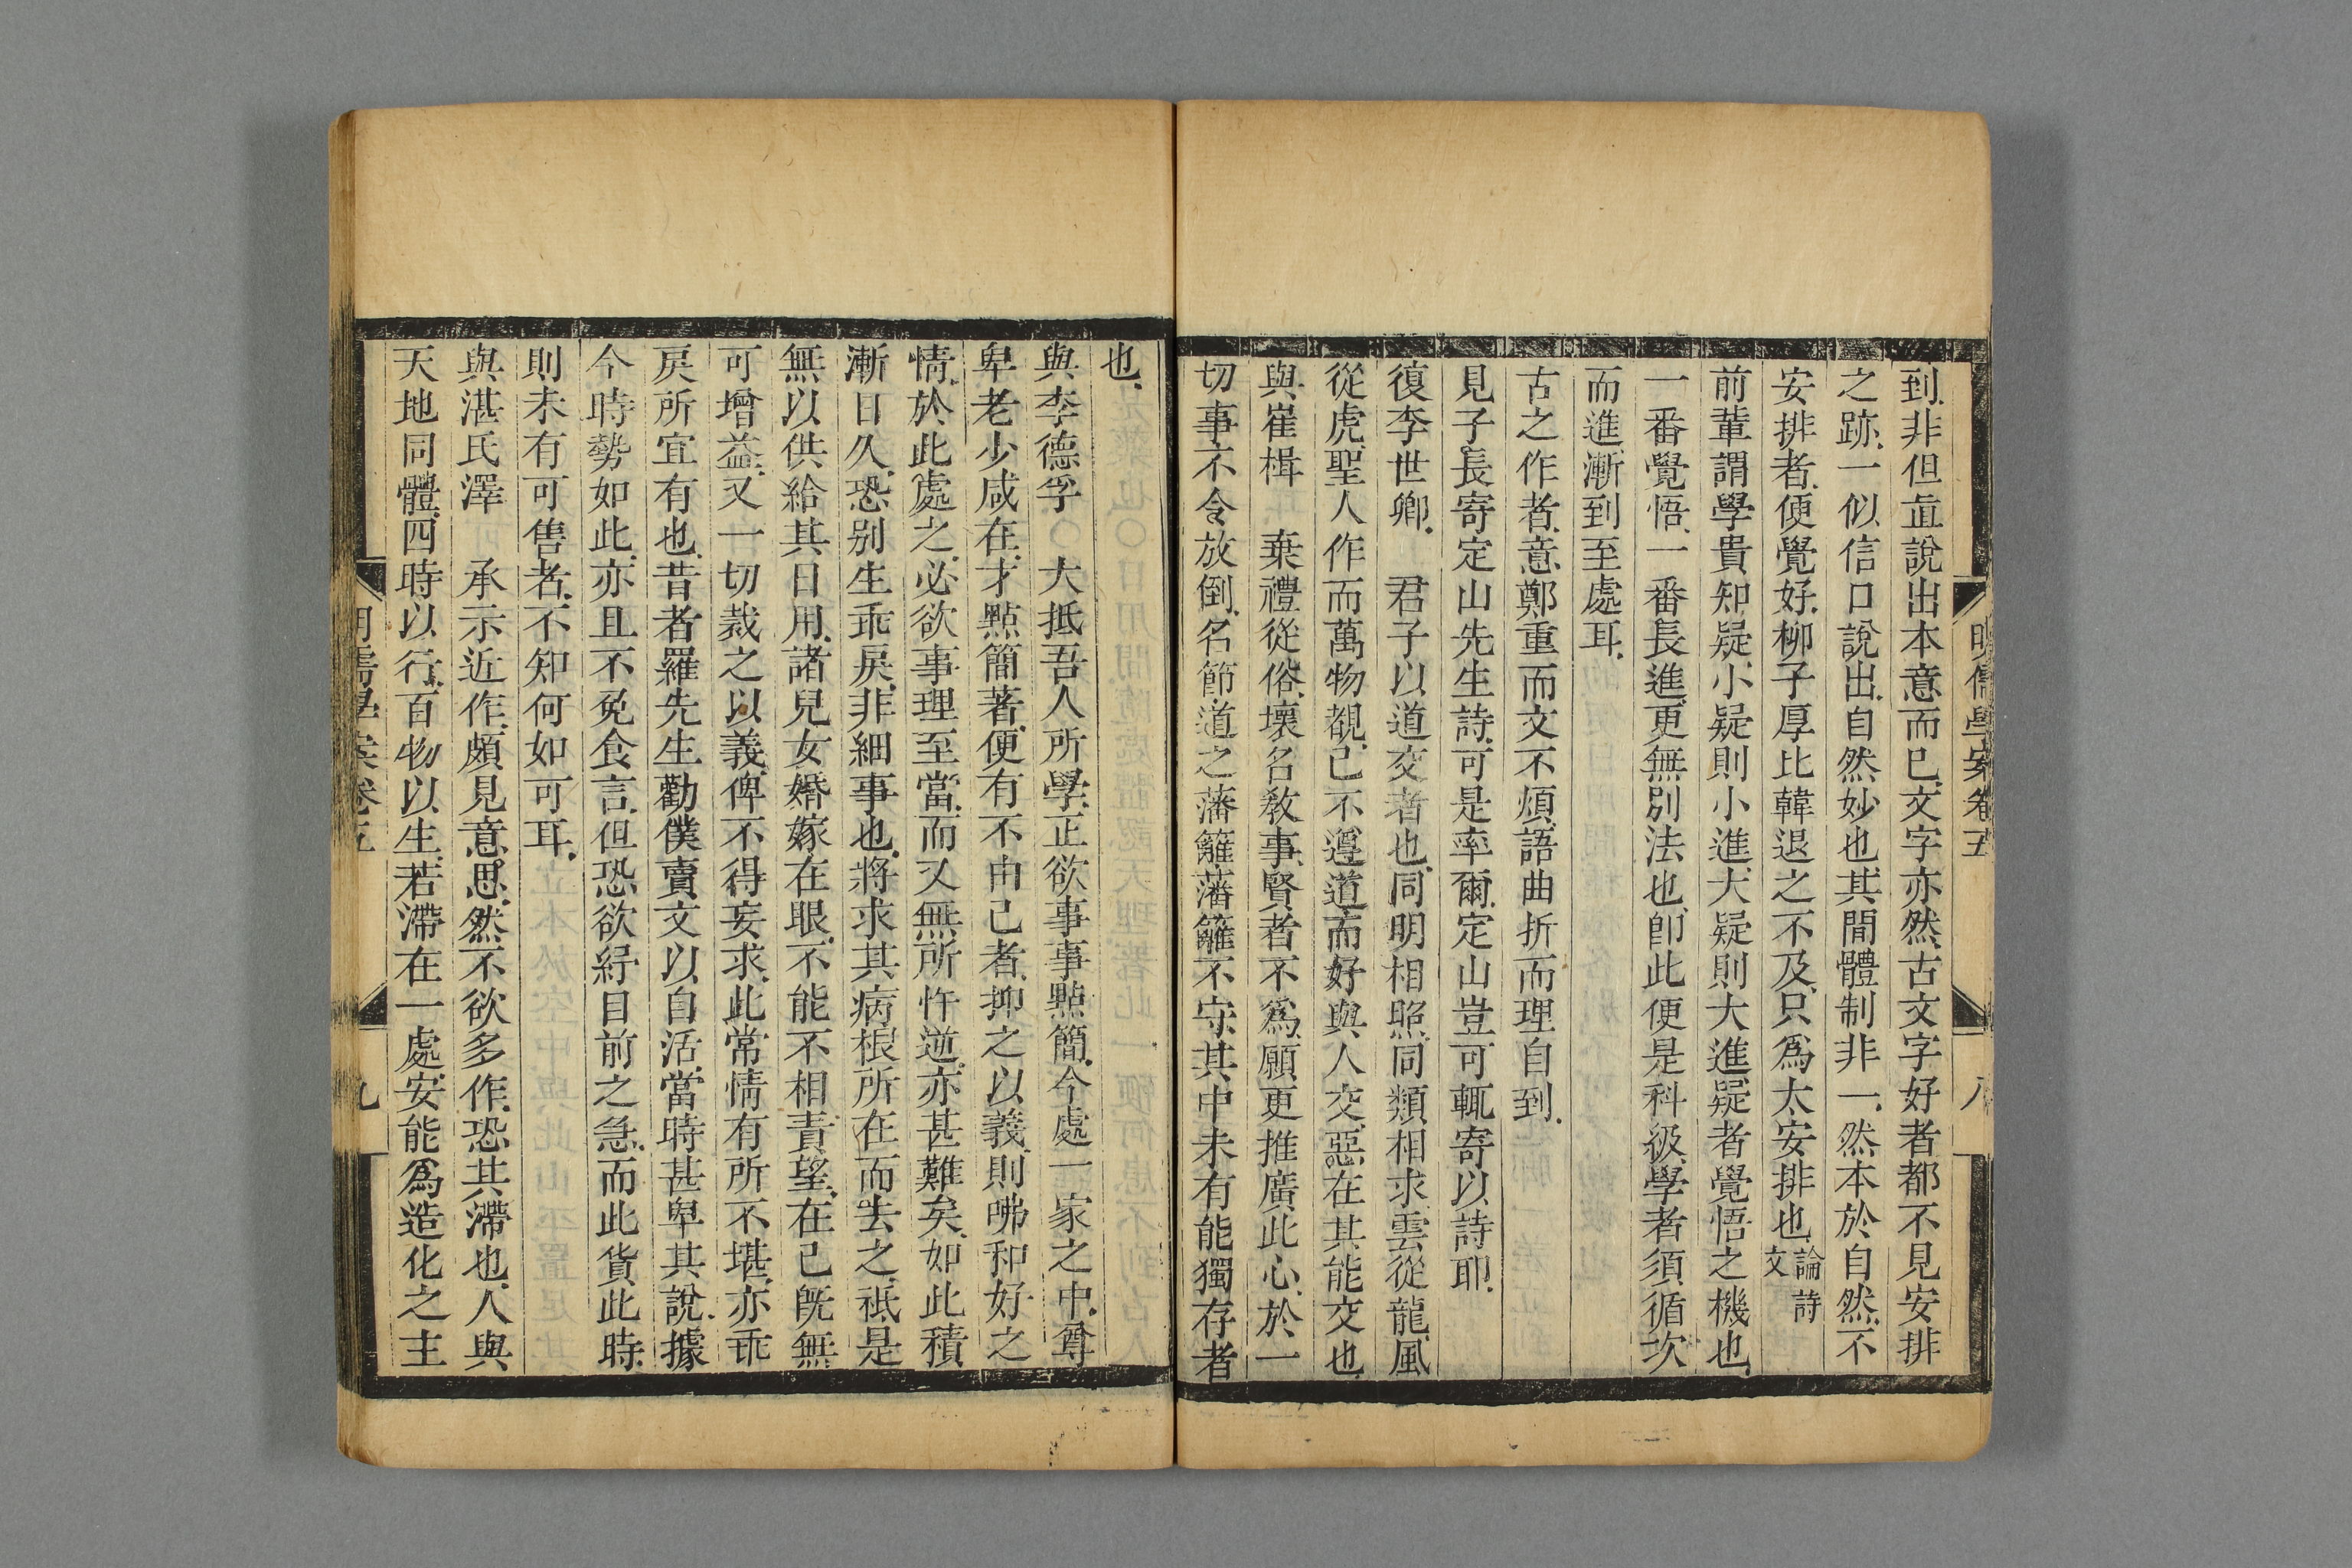 明儒學案卷五
八
到非但直說出本意而已文字亦然古文字好者都不見安排
之跡一似信口說出自然妙也其間體制非一然本於自然不
安排者便覺好柳子厚比韓退之不及只爲太安排也論詩文
前輩謂學貴知疑小疑則小進大疑則大進疑者覺悟之機也
一番覺悟一番長進更無別法也卽此便是科級學者須循次
而進漸到至處耳
古之作者意鄭重而文不煩語曲折而理自到
見子長寄定山先生詩可是率爾定山豈可輒寄以詩耶
復李世卿　君子以道交者也同明相照同類相求雲從龍風
從虎聖人作而萬物覩己不遵道而好與人交惡在其能交也
與崔楫　棄禮從俗壞名敎事賢者不爲願更推廣此心於一
切事不令放倒名節道之藩籬藩籬不守其中未有能獨存者
也
與李德孚　大抵吾人所學正欲事事點簡今處一家之中尊
卑老少咸在才點簡著便有不由己者抑之以義則咈和好之
情於此處之必欲事理至當而又無所忤逆亦甚難矣如此積
漸日久恐别生乖戾非細事也將求其病根所在而去之祗是
無以供給其日用諸兒女婚嫁在眼不能不相責望在己旣無
可增益又一切裁之以義俾不得妄求此常情有所不堪亦乖
戾所宜有也昔者羅先生勸僕賣文以自活當時甚卑其說據
今時勢如此亦且不免食言但恐欲紓目前之急而此貨此時
則未有可售者不知何如可耳
與湛氏澤　承示近作頗見意思然不欲多作恐其滯也人與
天地同體四時以行百物以生若滯在一處安能爲造化之主
明儒學案卷五
九